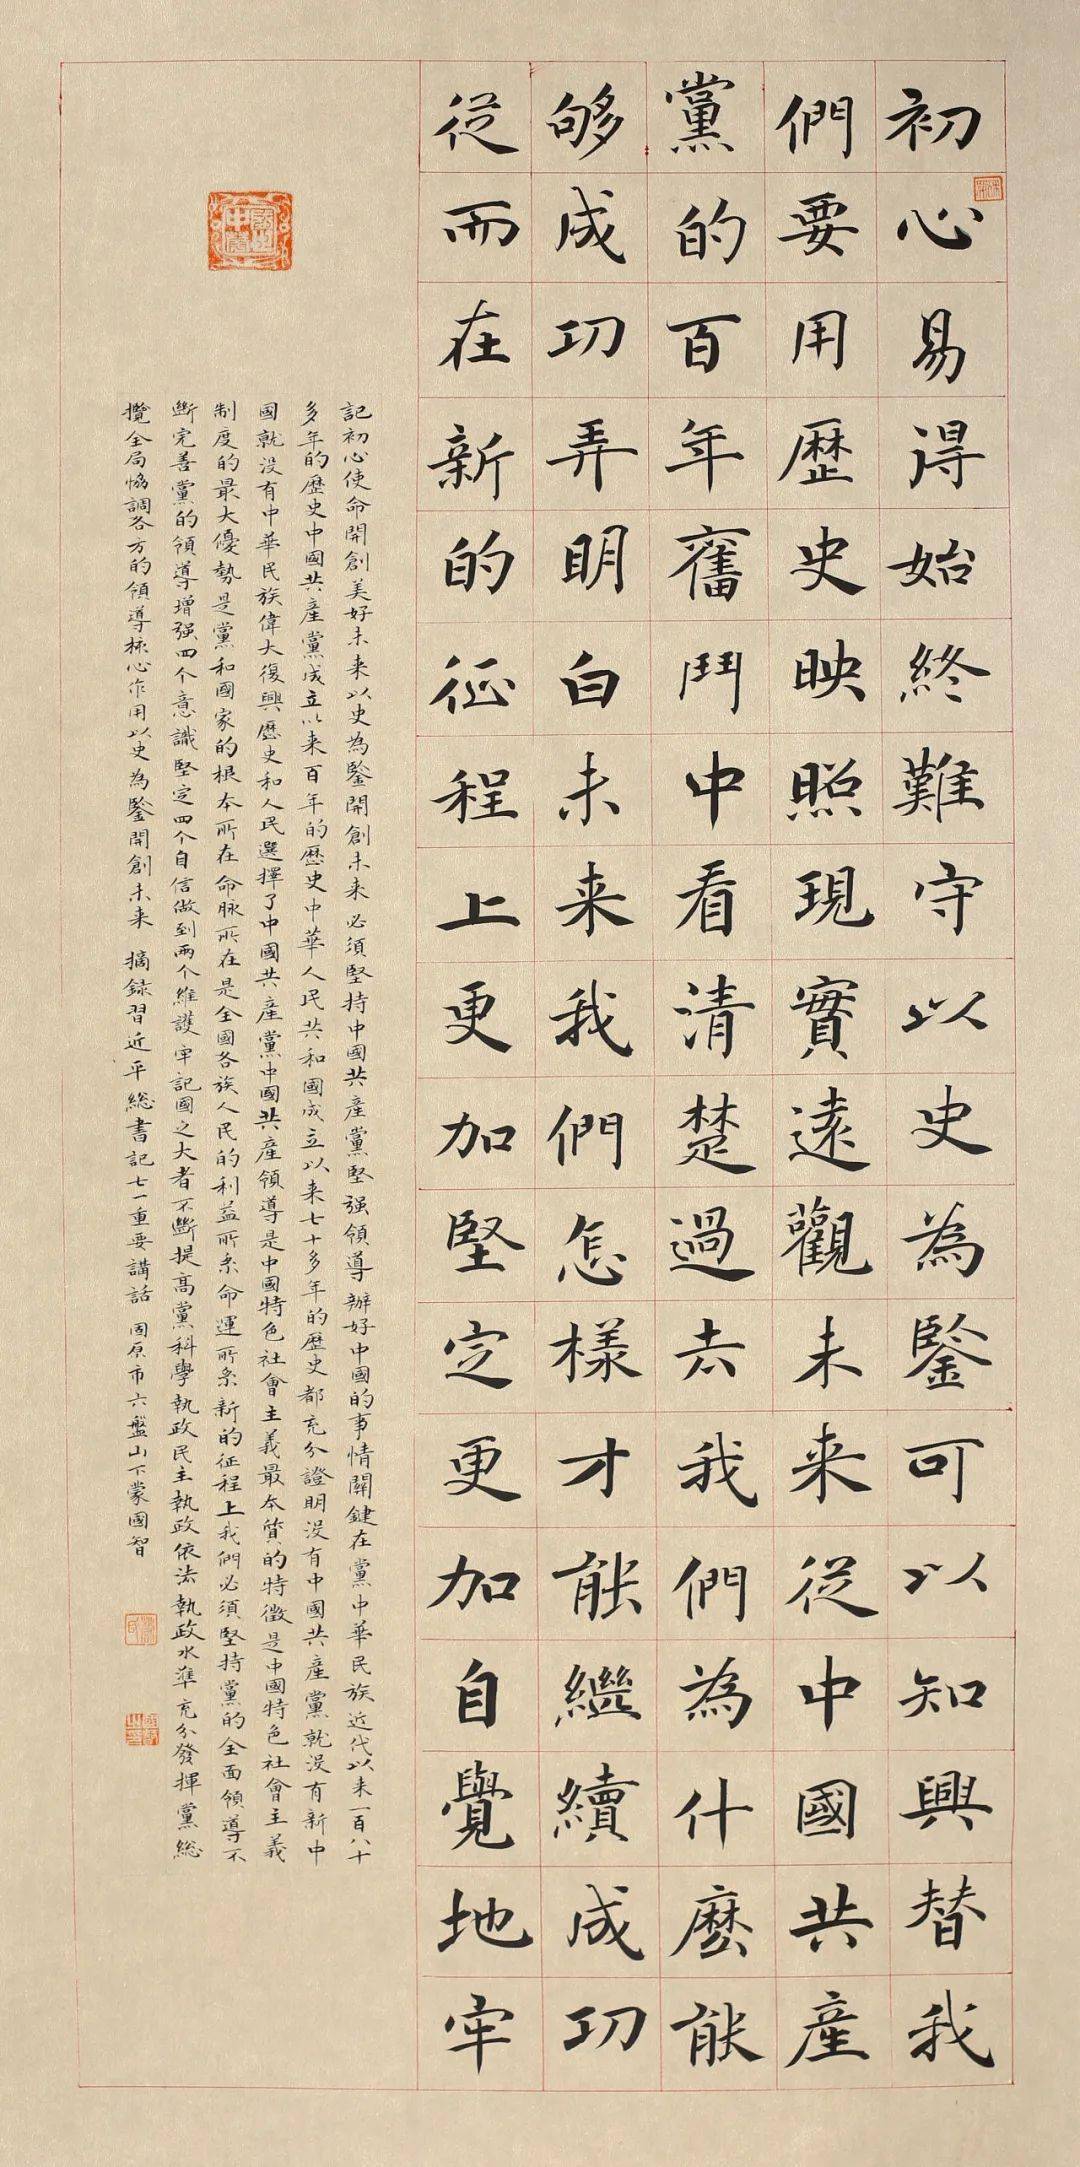 初心易得始終難守以史為鑒可以知興替我
們要用歷史映照現實遠觀未來從中國共產
黨的百年奮鬥中看清楚過去我們為什麼能
够成功弄明白未来我們怎樣才能繼續成功
從而在新的征程上更加堅定更加自覺地牢
記初心使命開創美好未来以史為鑒開創未来必須堅持中國共產黨堅强領導辦好中國的事情關鍵在黨中華民族近代以来一百八十
多年的歷史中國共產黨成立以来百年的歷史中華人民共和國成立以来七十多年的歷史都充分證明没有中國共產黨就没有新中
國就没有中華民族偉大復興歷史和人民選擇了中國共產黨中國共產領導是中國特色社會主義最本質的特徵是中國特色社會主義
制度的最大優勢是黨和國家的根本所在命脉所在是全國各族人民的利益所系命運所系新的征程上我們必須堅持黨的全面領導不
斷完善黨的領導增强四个意識堅定四个自信做到兩个維護牢記國之大者不斷提高黨科學執政民主執政依法執政水準充分發揮黨総
攬全局協調各方的領導核心作用以史為鑒開創未来 摘録習近平総書記七一重要講話 固原市六盤山下蒙國智